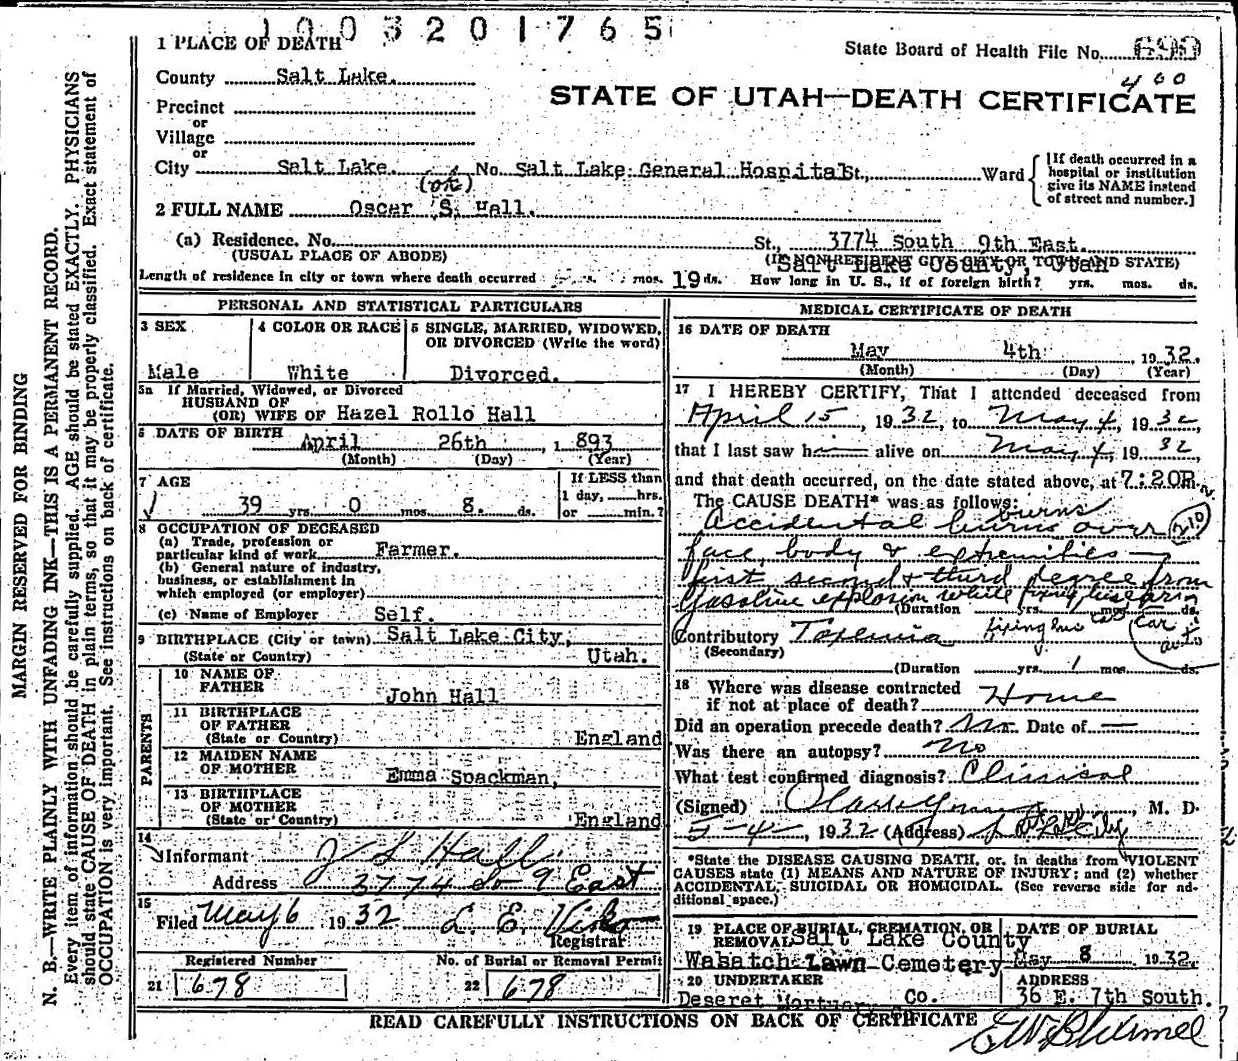 1003201765
1 PLACE OF DEATH
State Board of Health File No. 690
County Salt Lake.
400
STATE OF UTAH—DEATH CERTIFICATE
Precinct
or
Village
or
City Salt Lake. No. Salt Lake General Hospital St., Ward
[If death occurred in a hospital or institution give its NAME instead of street and number.]
(ok)
2 FULL NAME Oscar S. Hall.
(a) Residence. No. St., 3774 South 9th East.
(USUAL PLACE OF ABODE) (IF NONRESIDENT GIVE CITY OR TOWN AND STATE)
Salt Lake County, Utah
Length of residence in city or town where death occurred yrs. mos. 19 ds. How long in U. S., if of foreign birth? yrs. mos. ds.
PERSONAL AND STATISTICAL PARTICULARS
3 SEX
Male
4 COLOR OR RACE
White
5 SINGLE, MARRIED, WIDOWED,
OR DIVORCED (Write the word)
Divorced.
5a If Married, Widowed, or Divorced
HUSBAND OF
(OR) WIFE OF Hazel Rollo Hall
6 DATE OF BIRTH
April 26th 1893
(Month) (Day) (Year)
7 AGE
39 yrs. 0 mos. 8. ds.
If LESS than
1 day, hrs.
or min.?
8 OCCUPATION OF DECEASED
(a) Trade, profession or
particular kind of work Farmer.
(b) General nature of industry,
business, or establishment in
which employed (or employer)
(c) Name of Employer Self.
9 BIRTHPLACE (City or town) Salt Lake City,
(State or Country) Utah.
PARENTS
10 NAME OF
FATHER John Hall
11 BIRTHPLACE
OF FATHER
(State or Country) England
12 MAIDEN NAME
OF MOTHER Emma Spackman,
13 BIRTHPLACE
OF MOTHER
(State or Country) England
14
Informant J L Hall
Address 3774 So 9 East
15
Filed May 6 1932 L. E. Viko
Registrar
Registered Number
21 678
No. of Burial or Removal Permit
22 678
MEDICAL CERTIFICATE OF DEATH
16 DATE OF DEATH
May 4th, 1932.
(Month) (Day) (Year)
17 I HEREBY CERTIFY, That I attended deceased from
April 15, 1932, to May 4, 1932,
that I last saw him alive on May 4, 1932,
and that death occurred, on the date stated above, at 7:20P.m.
The CAUSE DEATH* was as follows:
burns
Accidental burns over 210
face, body & extremities —
first second & third degree from
Gasoline explosion while fixing
(Duration yrs. mos. ds.
Contributory Toxemia
fixing car
auto
(Secondary)
(Duration yrs. 1 mos. ds.
18 Where was disease contracted
if not at place of death? Home
Did an operation precede death? No. Date of —
Was there an autopsy? No
What test confirmed diagnosis? Clinical
(Signed) M. D.
5-4-, 1932 (Address) City
*State the DISEASE CAUSING DEATH, or, in deaths from VIOLENT
CAUSES state (1) MEANS AND NATURE OF INJURY; and (2) whether
ACCIDENTAL, SUICIDAL OR HOMICIDAL. (See reverse side for additional space.)
19 PLACE OF BURIAL, CREMATION, OR
REMOVAL Salt Lake County
Wasatch Lawn Cemetery
DATE OF BURIAL
May 8 1932.
20 UNDERTAKER
Deseret Mortuary Co.
ADDRESS
36 E. 7th South.
READ CAREFULLY INSTRUCTIONS ON BACK OF CERTIFICATE
MARGIN RESERVED FOR BINDING
N. B.—WRITE PLAINLY WITH UNFADING INK—THIS IS A PERMANENT RECORD.
Every item of information should be carefully supplied. AGE should be stated EXACTLY. PHYSICIANS
should state CAUSE OF DEATH in plain terms, so that it may be properly classified. Exact statement of
OCCUPATION is very important. See instructions on back of certificate.